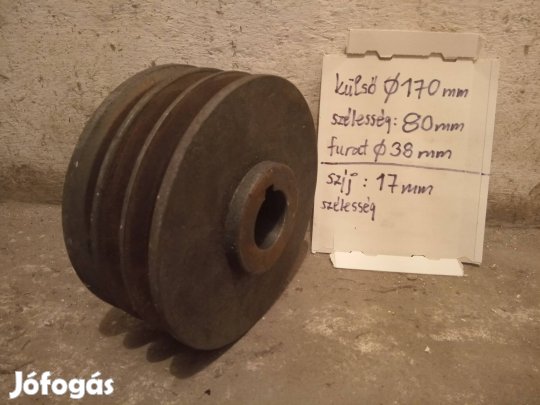 külső φ 170 mm
szélesség: 80 mm
furat φ 38 mm
szíj : 17 mm
szélesség
Jófogás